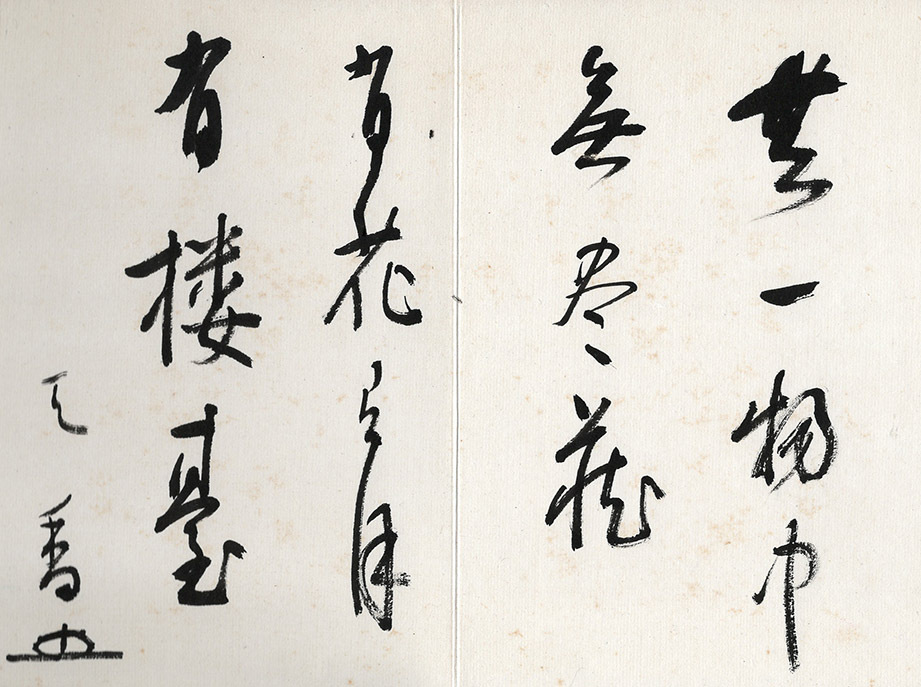 無一物中
無尽蔵
有花有月
有楼臺
天香